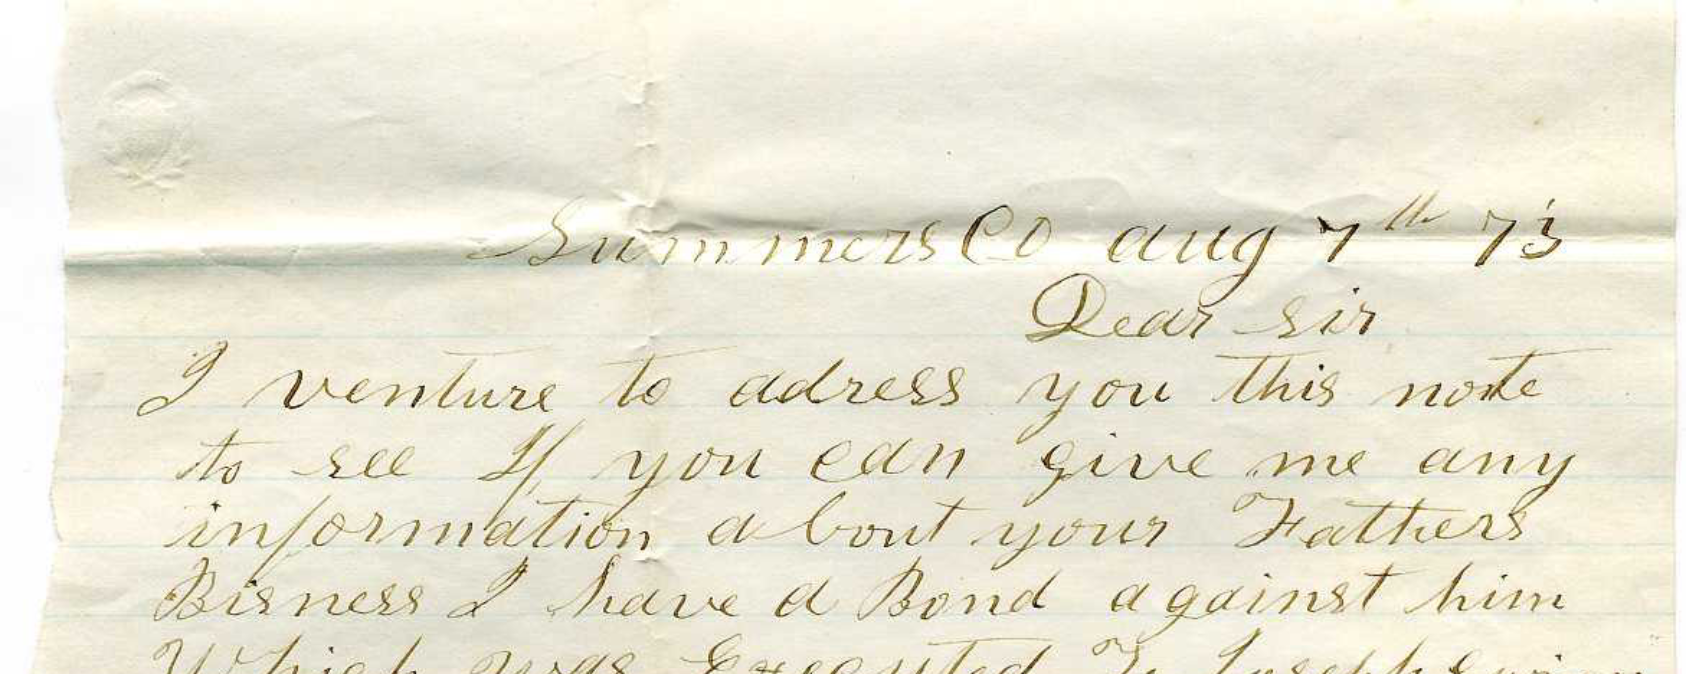 Summers Co aug 7th 73
Dear sir
I venture to adress you this note
to see If you can give me any
information about your Fathers
Bisness I have a Bond against him
Which was Executed To Joseph